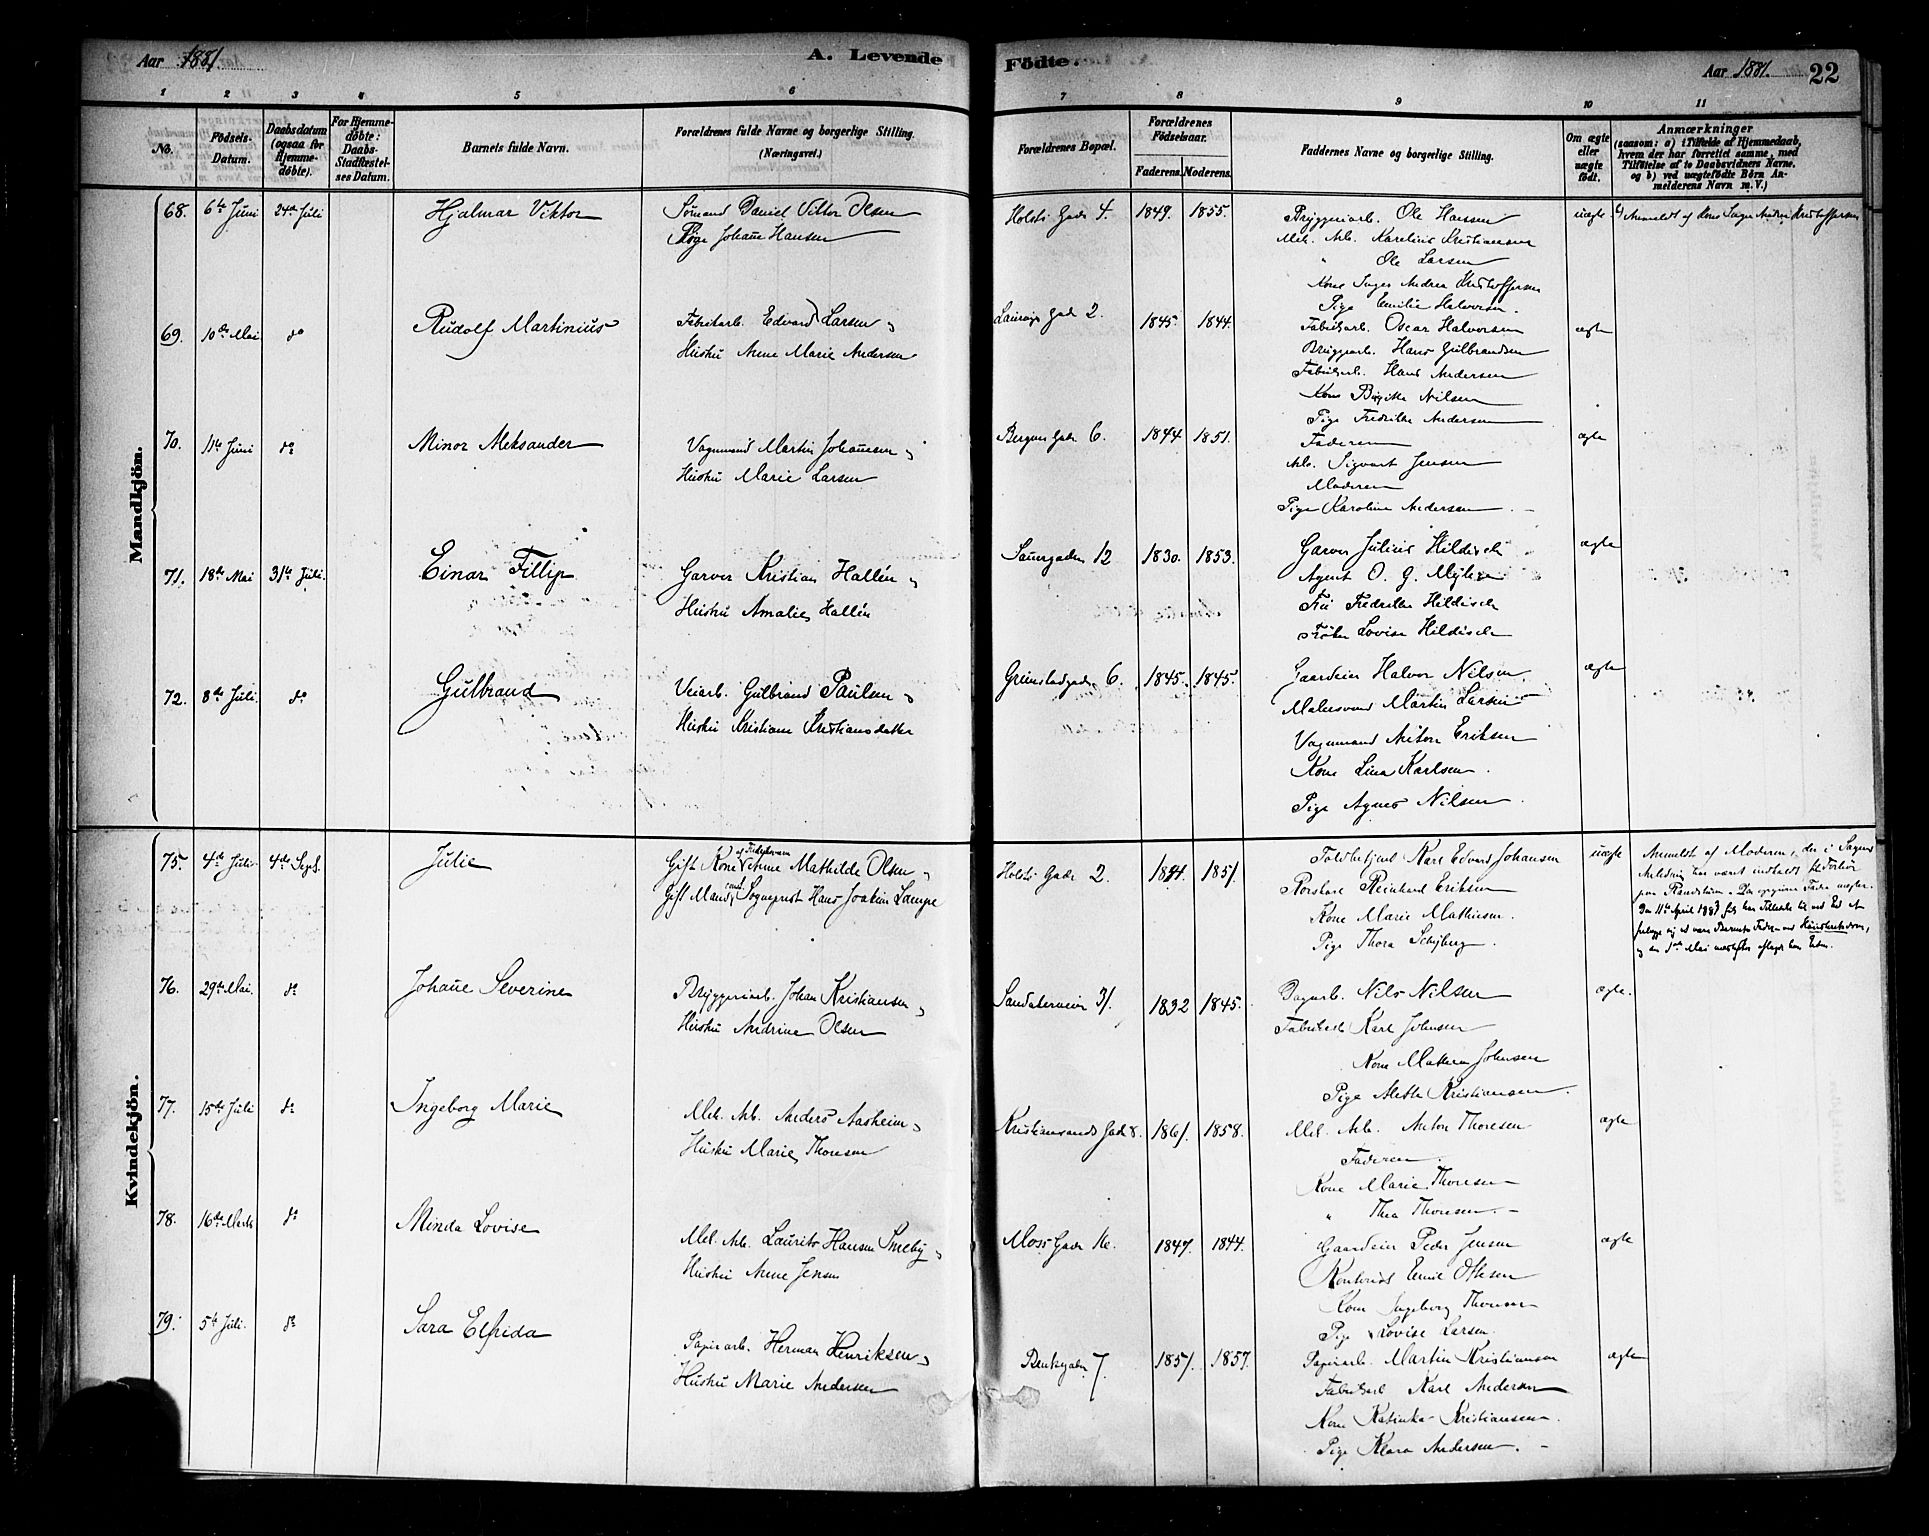 Aar 1881.
A. Levende Födte.
Aar 1881.
22
1 2 3 4 5 6 7 8 9 10 11
No.
Födsels-Datum.
Daabsdatum (ogsaa for Hjemme-döbte).
For Hjemme-döbte: Daabs-Stadfæstel-ses Datum.
Barnets fulde Navn.
Forældrenes fulde Navne og borgerlige Stilling. (Næringsvei.)
Forældrenes Bopæl.
Forældrenes Födselsaar.
Faderens. Moderens.
Faddernes Navne og borgerlige Stilling.
Om ægte eller uægte födt.
Anmærkninger
(saasom: a) i Tilfælde af Hjemmedaab, hvem der har forrettet samme, med Tilföielse af to Daabsvidners Navne, og b) ved uægtefödte Börn An-melderens Navn m. V.)
Mandkjön.
68. 6te Juni 24de Juli Hjalmar Viktor
Sömand Daniel Viktor Olsen
Pige Johanne Hansen
Holsts Gade 4. 1849. 1855.
Bryggeriarb. Ole Hansen
Mek. Arb. Karelius Kristiansen
" Ole Larsen
Kone Inger Andrea Kristoffersen
Pige Emilie Halvorsen.
uægte
Anmeldt af Kone Inger Andrea Kristoffersen
69. 10de Mai do Rudolf Martinius
Fabrikarb. Edvard Larsen
Hustru Anne Marie Andersen
Laurvigs Gade 2. 1845. 1844.
Fabrikarb. Oscar Halvorsen
Bryggeriarb. Hans Gulbrandsen
Fabrikarb. Hans Andersen
Kone Birgitte Nilsen
Pige Fredrikke Andersen
ægte
70. 11te Juni do Minor Aleksander
Vognmand Martin Johansen
Hustru Marie Larsen
Bergens Gade 6. 1844 1851.
Faderen
Arb. Sigvart Jensen
Moderen
Pige Karoline Andersen
ægte
71. 18de Mai 31te Juli. Einar Fillip
Garver Kristian Hallén
Hustru Amalie Hallén
Sannergaden 12 1830. 1853.
Garver Julius Hildisch
Agent O. G. Myhre
Fru Fredrikke Hildisch
Frøken Lovise Hildisch
ægte
72. 8de Juli. do Gulbrand
Veiarb. Gulbrand Paulsen
Hustru Kristiane Kristiansdatter
Grimstadgaden 6. 1845. 1845.
Gaardeier Halvor Nilsen
Malersvend Martin Larsen
Vognmand Anton Eriksen
Kone Lina Karlsen.
Pige Agnes Nilsen.
ægte
Kvindekjön.
75. 4de Juli 4de Sept. Julie
Gift Kone Mathilde Olsen
Gift Mand, Sogneprest Hans Joakim Lampe
Holsts Gade 2. 1851.
Toldbetjent Karl Edvard Johansen
Reinhard Eriksen
Kone Marie Mathisen.
Pige Thora Schyberg.
uægte
Anmeldt af Moderen, der i Sagens
Anledning har været indkaldt til Forhør
paa Raadstuen. Den opgivne Fader nægter.
Den 11te April 1883 fik han Tilladelse til ved Ed at
fralægge sig at være Barnets Fader
og den 1ste Mai aflagde han Eden.
76. 29de Mai. do Johanne Severine
Bryggeriarb. Johan Kristiansen
Hustru Andrine Olsen
Sandakerveien 31. 1832 1845.
Dagarb. Nils Nilsen
Fabrikarb. Karl Johnsen
Kone Mathea Johnsen
Pige Mette Kristiansen.
ægte.
77. 15de Juli do Ingeborg Marie
Mek. Arb. Anders Aasheim
Hustru Marie Thoresen
Kristiansands Gade 8. 1861. 1858.
Mek. Arb. Anton Thoresen
Faderen.
Kone Marie Thoresen
" Thea Thoresen.
ægte
78. 16de Marts do Minda Lovise
Mek. Arb. Laurits Hansen Smeby
Hustru Anne Jensen
Moss Gade 16. 1847. 1844.
Gaardeier Peder Jensen
Kontorist Emil Ottesen
Kone Ingeborg Thoresen
Pige Lovise Larsen.
ægte
79. 5te Juli. do Sara Elfrida
Papirarb. Herman Henriksen
Hustru Marie Andersen
Bentsegaden 7. 1851. 1857.
Papirarb. Martin Kristiansen
Fabrikarb. Karl Andersen
Kone Katinka Kristiansen.
Pige Klara Andersen.
ægte